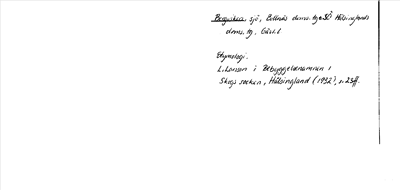 Bergviken, sjö, Bollnäs doms. tg o SÖ Hälsinglands
doms. tg, Gävl. l
Etymologi.
L. Larsson i Bebyggelsenamnen i
Skogs socken, Hälsingland (1932), s. 23ff.